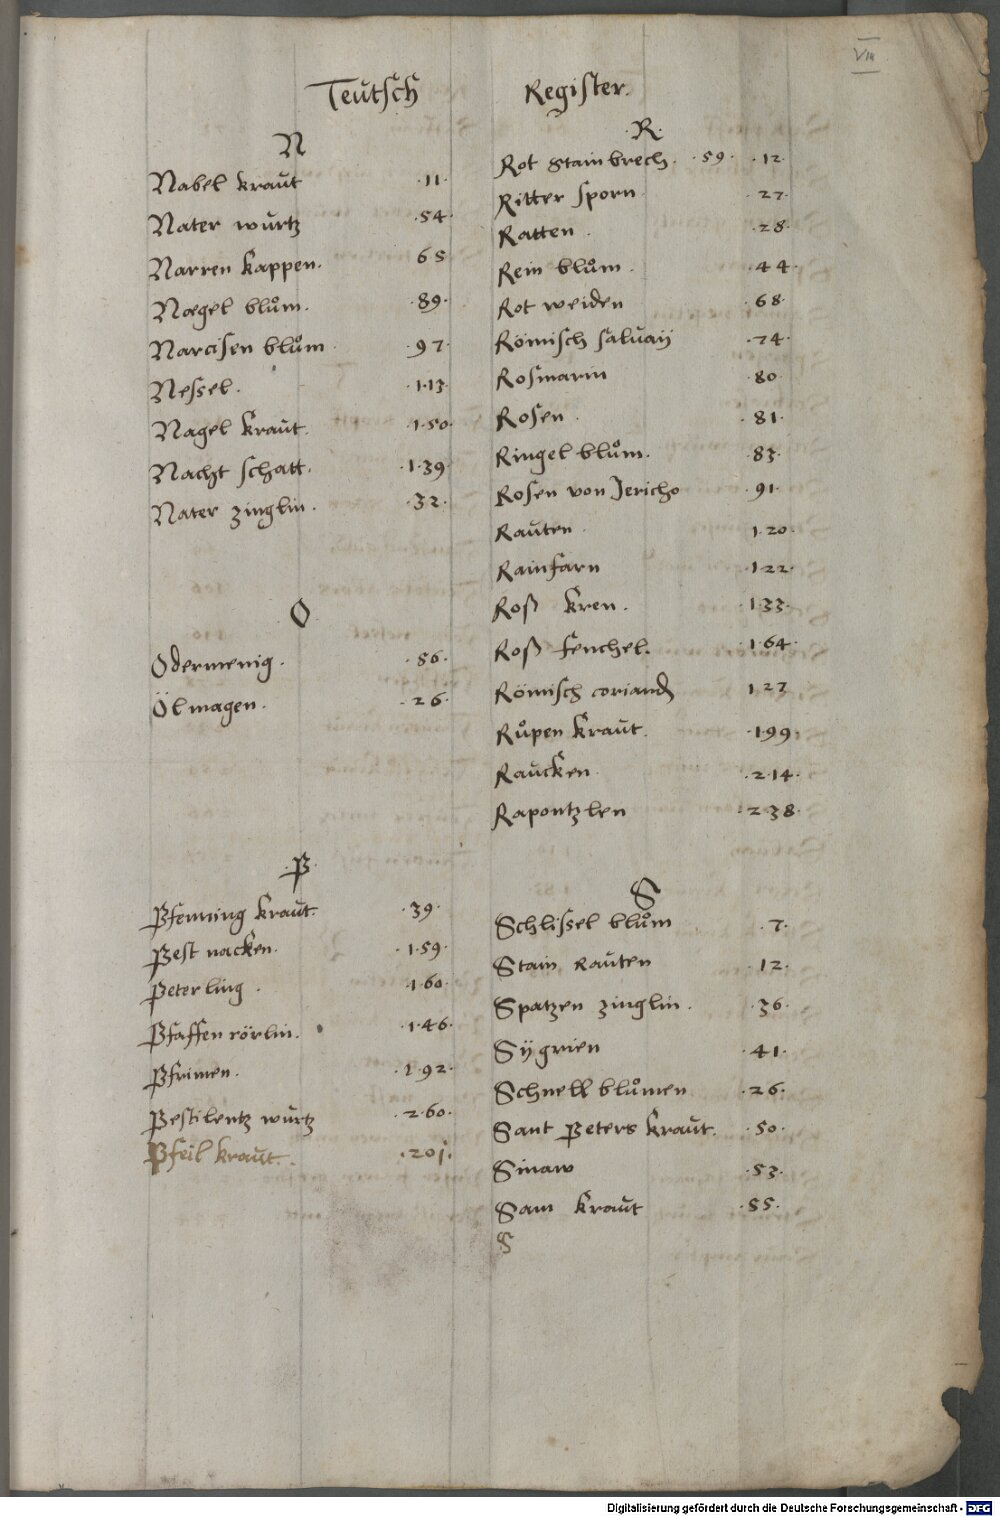 VII
Teütsch Register.
N
Nabel kraüt ·11·
Nater würtz ·54·
Narren kappen. 65
Nægel blům. ·89·
Narcisen blům ·97·
Nessel. ·113·
Nagel kraüt. ·150·
Nacht schatt. ·139·
Nater zinglin. ·32·
O
Odermenig. ·56·
Ölmagen. ·26·
P
Pfenning kraüt. ·39·
Pest nacken. ·159·
Peterling. ·160·
Pfaffen rörlin. ·146·
Pfrimen. ·192·
Pestilentz würtz ·260·
Pfeil kraüt. ·201·
·R·
Rot stainbrech. ·59· ·12·
Ritter sporn ·27·
Ratten. ·28·
Rein blům. ·44·
Rot weiden ·68·
Römisch salüaÿ ·74·
Rosmarin ·80·
Rosen ·81·
Ringel blům. ·83·
Rosen von Jericho ·91·
Raüten ·120·
Rainfarn ·122·
Roß kren. ·133·
Roß fenchel. ·164·
Römisch coriand 127
Růpen kraüt. ·199·
Raücken. ·214·
Rapontzlen ·238·
S
Schlissel blům ·7·
Stain rauten ·12·
Spatzen zinglin. ·36·
Sÿgrien ·41·
Schnell blůmen ·26·
Sant Peters kraüt. ·50·
Sinaw ·53·
Sam kraüt ·55·
S
Digitalisierung gefördert durch die Deutsche Forschungsgemeinschaft - DFG